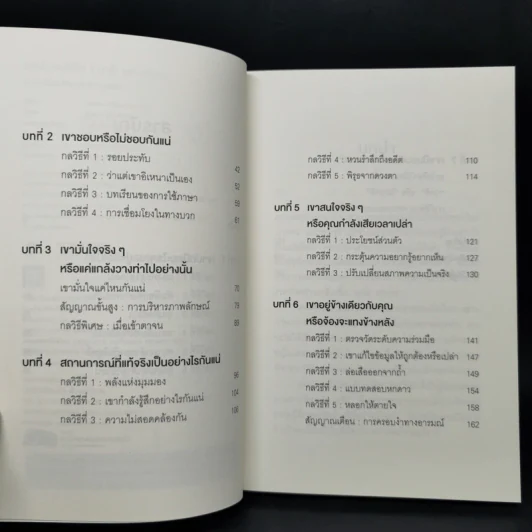 บทที่ 2 เขาชอบหรือไม่ชอบกันแน่
กลวิธีที่ 1 : รอยประทับ 42
กลวิธีที่ 2 : ว่าแต่เขาอิเหนาเป็นเอง 52
กลวิธีที่ 3 : บทเรียนของการใช้ภาษา 59
กลวิธีที่ 4 : การเชื่อมโยงในทางบวก 61
บทที่ 3 เขามั่นใจจริง ๆ
หรือแค่แกล้งวางท่าไปอย่างนั้น
เขามั่นใจแค่ไหนกันแน่ 70
สัญญาณขั้นสูง : การบริหารภาพลักษณ์ 78
กลวิธีพิเศษ : เมื่อเข้าตาจน
บทที่ 4 สถานการณ์ที่แท้จริงเป็นอย่างไรกันแน่
กลวิธีที่ 1 : พลังแห่งมุมมอง
กลวิธีที่ 2 : เขากำลังรู้สึกอย่างไรกันแน่
กลวิธีที่ 3 : ความไม่สอดคล้องกัน
กลวิธีที่ 4 : หวนรำลึกถึงอดีต 110
กลวิธีที่ 5 : พิรุธจากดวงตา 114
บทที่ 5 เขาสนใจจริง ๆ
หรือคุณกำลังเสียเวลาเปล่า
กลวิธีที่ 1 : ประโยชน์ส่วนตัว 121
กลวิธีที่ 2 : กระตุ้นความอยากรู้อยากเห็น 127
กลวิธีที่ 3 : ปรับเปลี่ยนสภาพความเป็นจริง 130
บทที่ 6 เขาอยู่ข้างเดียวกับคุณ
หรือจ้องจะแทงข้างหลัง
กลวิธีที่ 1 : ตรวจวัดระดับความร่วมมือ 141
กลวิธีที่ 2 : เขาแก้ไขข้อมูลให้ถูกต้องหรือเปล่า 147
กลวิธีที่ 3 : ล่อเสือออกจากถ้ำ
กลวิธีที่ 4 : แบบทดสอบหกดาว 154
กลวิธีที่ 5 : หลอกให้ตายใจ 158
สัญญาณเตือน : การครอบงำทางอารมณ์ 162